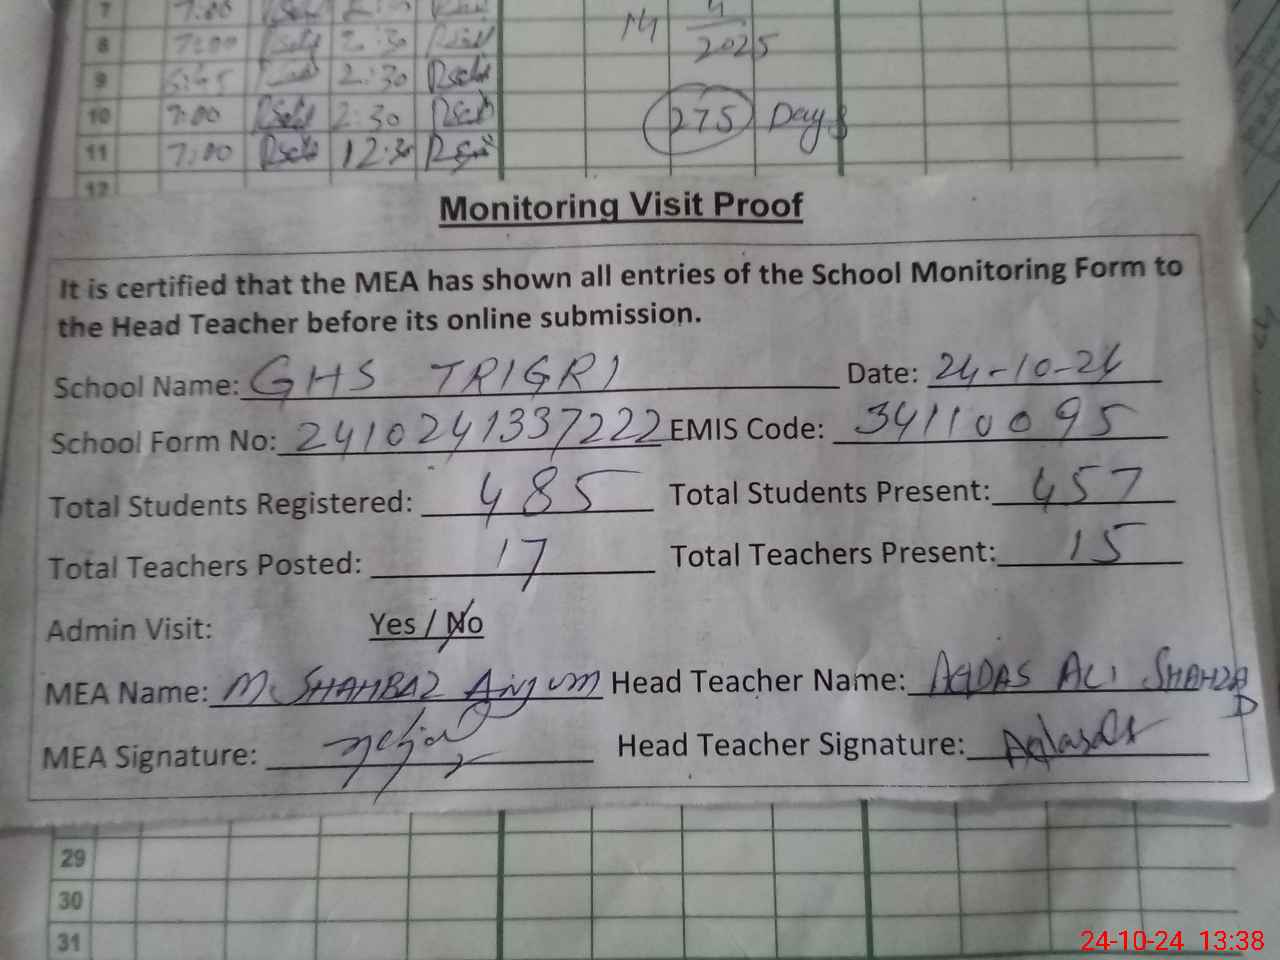 7 7:00
8 7:00 2:30
9 6:45 2:30
10 7:00 2:30
11 7:00 12:30
12
14 4
2025
275 Days
Monitoring Visit Proof
It is certified that the MEA has shown all entries of the School Monitoring Form to
the Head Teacher before its online submission.
School Name: GHS TRIGRI Date: 24-10-24
School Form No: 2410241337222 EMIS Code: 34110095
Total Students Registered: 485 Total Students Present: 457
Total Teachers Posted: 17 Total Teachers Present: 15
Admin Visit: Yes / No
MEA Name: M. SHAHBAZ Anjum Head Teacher Name: AQDAS ALI SHAHZAD
MEA Signature: Head Teacher Signature:
29
30
31
24-10-24 13:38